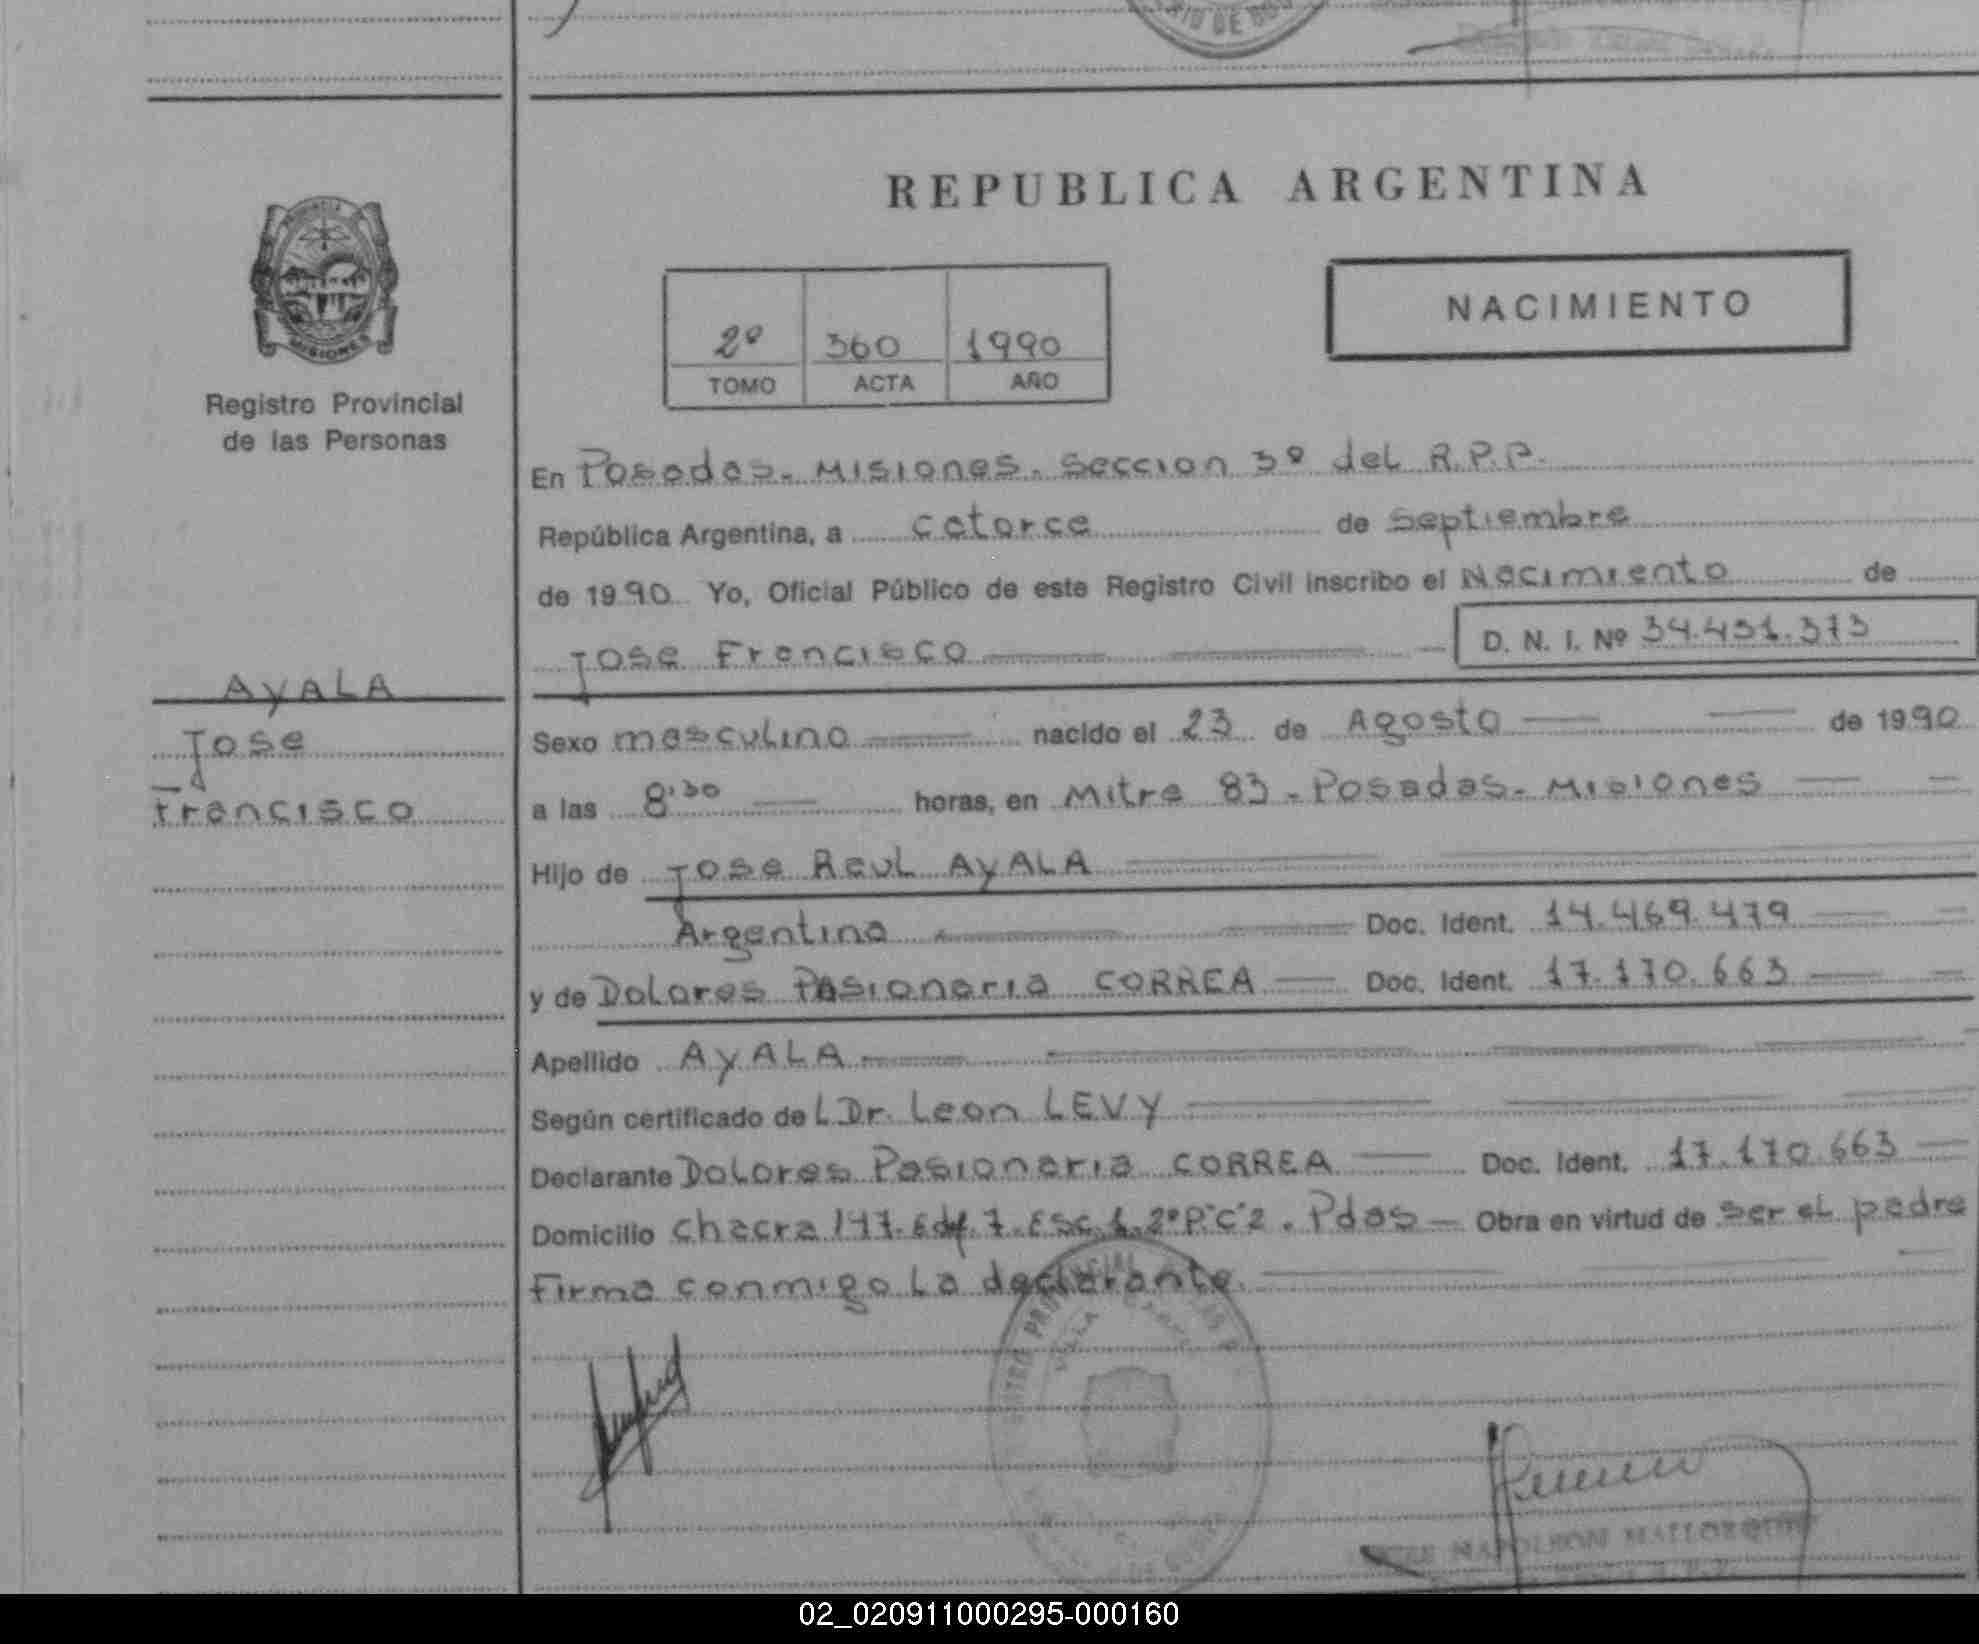 REPUBLICA ARGENTINA
NACIMIENTO
2º 360 1990
TOMO ACTA AÑO
MISIONES
Registro Provincial
de las Personas
En Posadas - Misiones. Seccion 3º del R.P.P.
República Argentina, a catorce de septiembre
de 1990 Yo, Oficial Público de este Registro Civil inscribo el Nacimiento de
Jose Francisco D. N. I. Nº 34.451.373
AYALA
Jose
Francisco
Sexo masculino nacido el 23 de Agosto de 1990
a las 8'30 horas, en Mitre 83 - Posadas - Misiones
Hijo de Jose Raul AYALA
Argentino Doc. Ident. 14.469.479
y de Dolores Pasionaria CORREA Doc. Ident. 17.170.663
Apellido AYALA
Según certificado de L Dr. Leon LEVY
Declarante Dolores Pasionaria CORREA Doc. Ident. 17.170.663
Domicilio chacra 147. Edf. 7. Esc. 1. 2º P."C"2. Pdas - Obra en virtud de ser el padre
Firma conmigo la declarante.
NAPOLEON MALLORQUIN
02_020911000295-000160